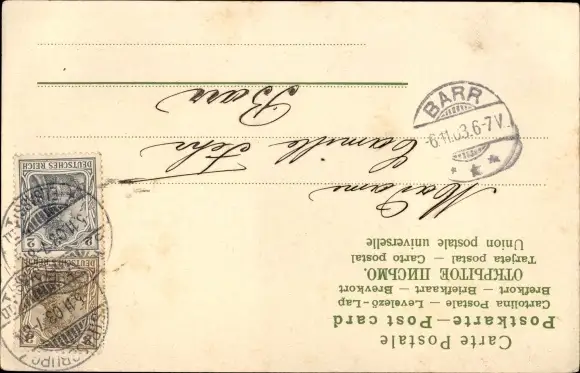 Carte Postale
Postkarte—Post card
Cartolina Postale — Levelező-Lap
Brefkort — Briefkaart — Brevkort
ОТКРЫТОЕ ПИСЬМО.
Tarjeta postal — Carto postal
Union postale universelle
Madame
Camille Fehr
Barr
BARR
-6.11.03.6-7V.
DEUTSCHES REICH
2
DEUTSCHES REICH